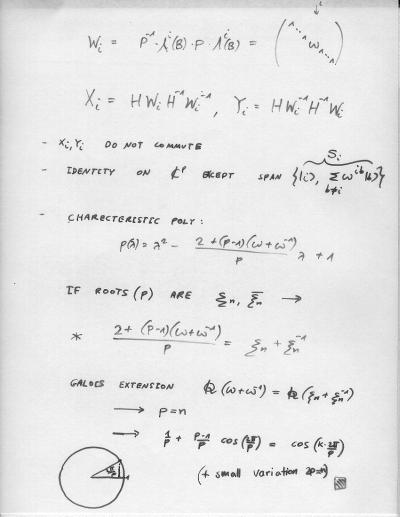 ↓ i
W_i = P^{-1} · Λ^i(B) · P · Λ^i(B) = ( 1 ⋱ 1 ω 1 ⋱ 1 )
X_i = H W_i H^{-1} W_i^{-1} , Y_i = H W_i^{-1} H^{-1} W_i
- X_i, Y_i DO NOT COMMUTE
S_i
- IDENTITY ON ℂ^P EXCEPT SPAN {|i⟩, Σ_{b≠i} ω^{ib} |b⟩}
- CHARECTERISTIC POLY :
p(λ) = λ² - \frac{2+(p-1)(ω+ω^{-1})}{p} λ + 1
IF ROOTS (P) ARE ξ_n, \overline{ξ_n} →
* \frac{2+(p-1)(ω+ω^{-1})}{p} = ξ_n + ξ_n^{-1}
GALOIS EXTENSION ℚ(ω+ω^{-1}) = ℚ(ξ_n+ξ_n^{-1})
→ p=n
→ \frac{1}{p} + \frac{p-1}{p} cos(\frac{2π}{p}) = cos(k·\frac{2π}{p})
(+ small variation 2p=n)